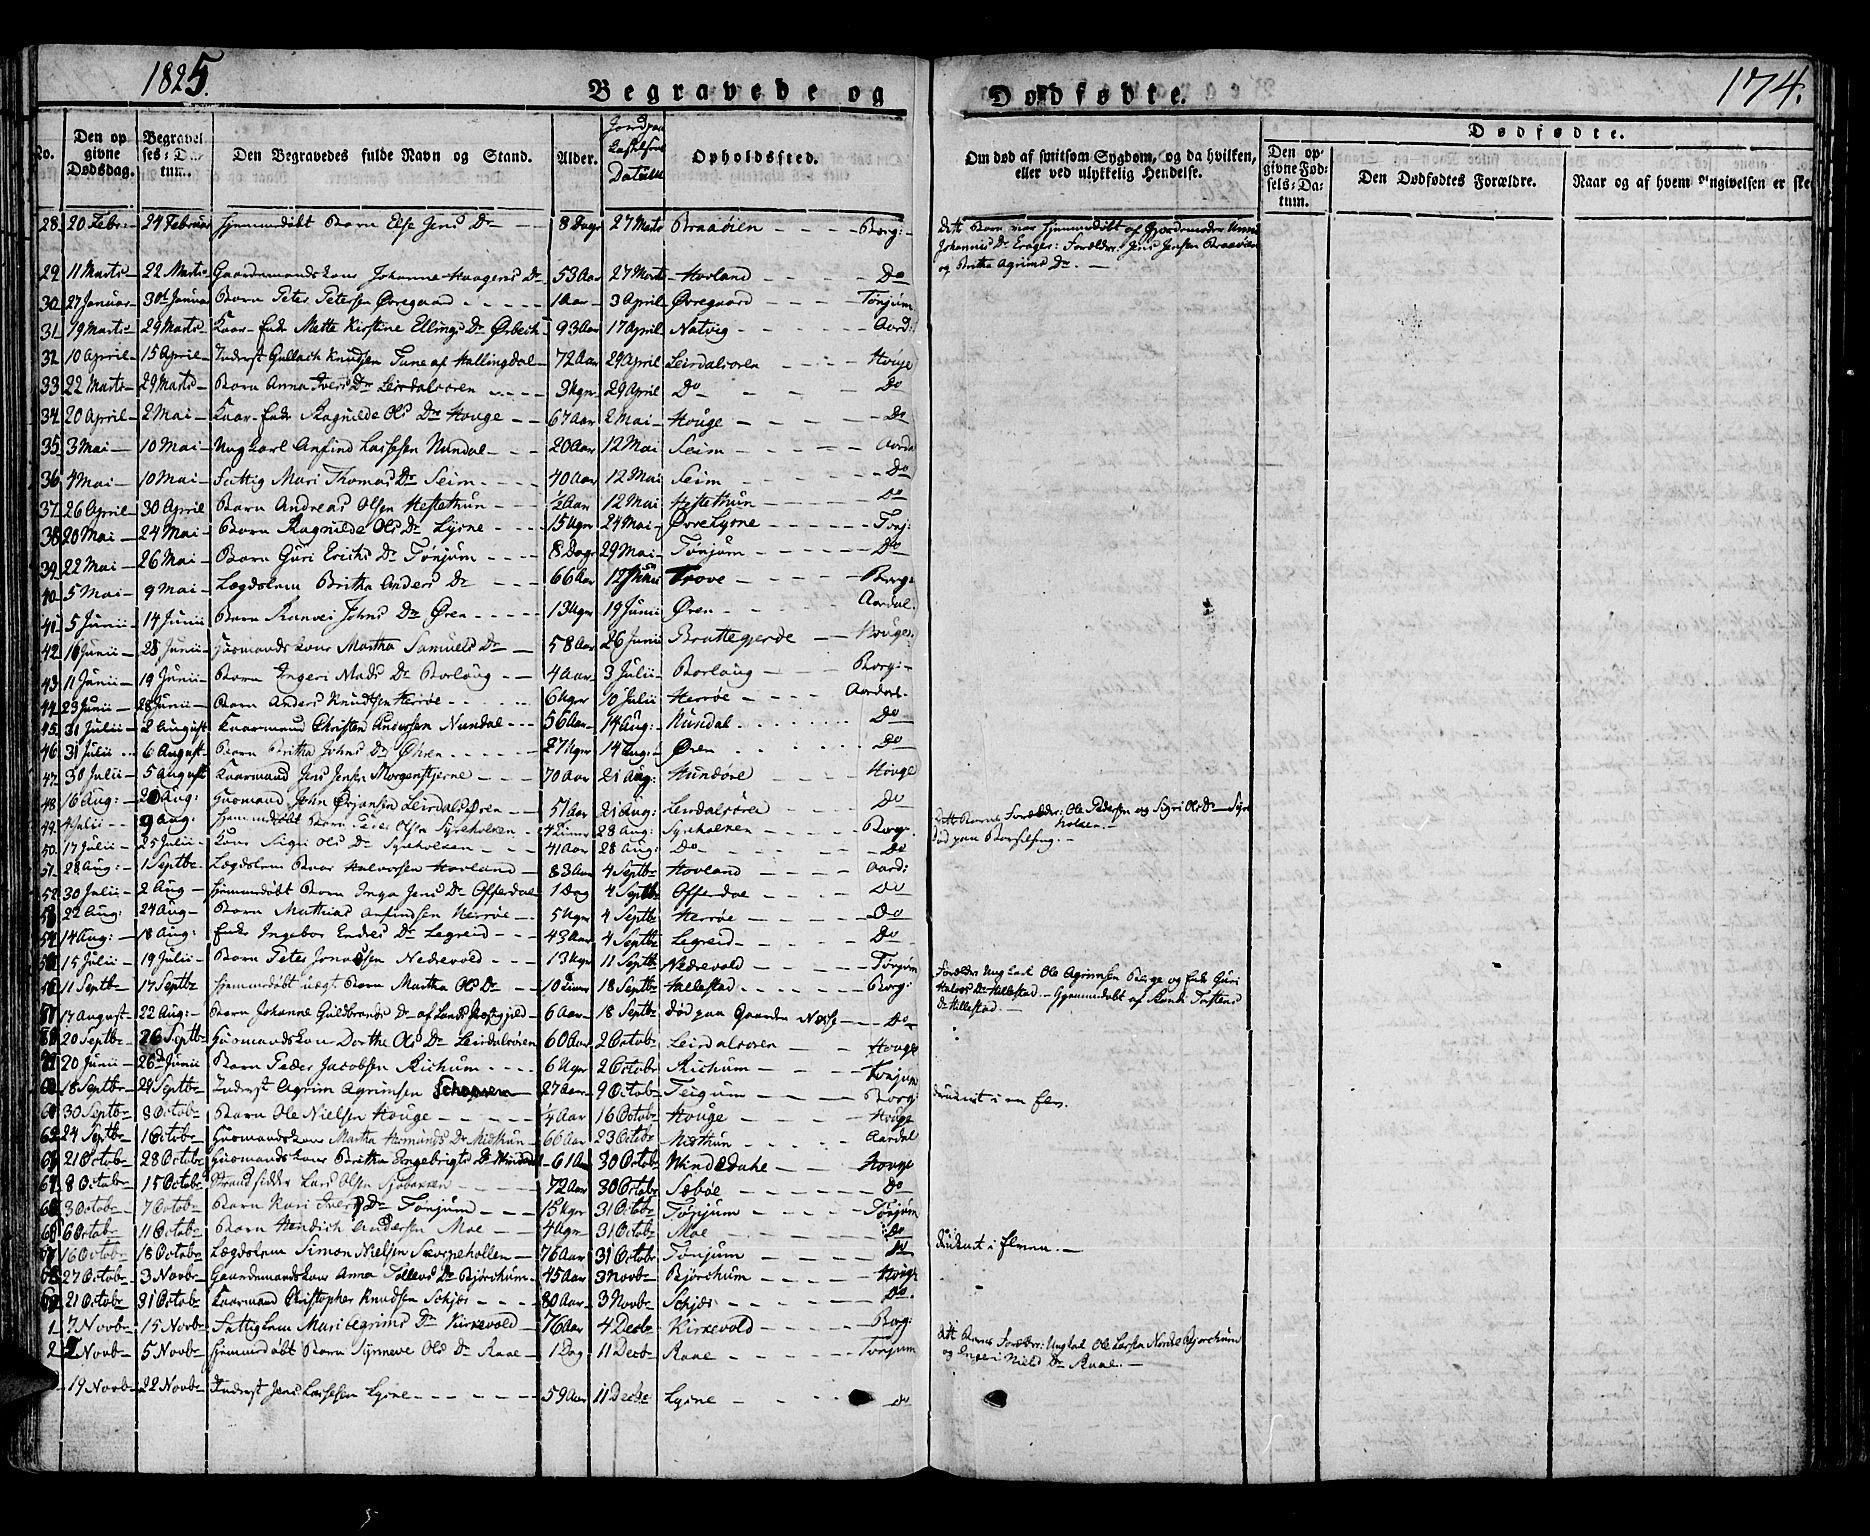 1825.
Begravede og
Dødfødte.
174.
No.
Den op givne Dødsdag.
Begravelses-Datum.
Den Begravedes fulde Navn og Stand.
Alder.
Jordpaakastelses Datum
Opholdssted.
Om død af smitsom Sygdom, og da hvilken, eller ved ulykkelig Hendelse.
Dødfødte.
Den opgivne Fødsels-Datum.
Den Dødfødtes Forældre.
Naar og af hvem Angivelsen er
28 20 Febr: 24 Februar hjemmedøbt Barn Else Jens Dr 8 Dage 27 Marts Braaøien Borg:
Dette Barn var hjemmedøbt af Gjordemoder Anna
Johannis Dr Forældre: Jens Jensen Braaøien
og Britha Agrims Dr.
29 11 Marts 22 Marts Gaardmandskone Johanne Haagens Dr 53 Aar 27 Marts Hovland Do
30 27 Januar 30te Januar Barn Peter Petersen Øvregaard 1 Aar 3 April Øvregaard Tønjum
31 19 Marts 29 Marts Kaar-Enke Mette Kirstine Ellings Dr Ørbech 93 Aar 17 April Natvig Aard:
32 10 April 15 April Inderst Gullach Knudsen Tune af Hallingdal 72 Aar 29 April Leirdalsøren Houge
33 22 Marts 29 Marts Barn Anna Ivers Dr Leirdalsøren 3 Uger 29 April Do Do
34 20 April 2 Mai Kaar-Enke Ragnilde Ols Dr Houge 67 Aar 2 Mai Houge Do
35 3 Mai 10 Mai Ungkarl Anfind Lassesen Nundal 20 Aar 12 Mai Seim Aardal
36 4 Mai 10 Mai Fattig Mari Thomas Dr Seim 40 Aar 12 Mai Seim Do
37 26 April 30 April Barn Andreas Olsen Hestethun ½ Aar 12 Mai Hestethun Do
38 20 Mai 24 Mai Barn Ragnilde Ols Dr Lysne 15 Uger 24 Mai Øvrelysne Tonj:
39 22 Mai 26 Mai Barn Guri Erichs Dr Tønjum 8 Dage 29 Mai Tønjum Do
40 5 Mai 9 Mai Lægdslem Britha Anders Dr 66 Aar 12 Junii Trove Borg:
41 5 Junii 14 Junii Barn Ranvei Johns Dr Øren 13 Uger 19 Junii Øren Aardal
42 16 Junii 28 Junii Huusmandskone Martha Samuels Dr 58 Aar 26 Junii Brattegjerde Houge:
43 11 Junii 19 Junii Barn Ingeri Mads Dr Borlaug 4 Aar 3 Julii Borlaug Borg:
44 23 Junii 28 Junii Barn Anders Knudtsen Herrøe 6 Uger 10 Julii Herrøe Aardal
45 31 Julii 2 August Kaarmand Christen Andersen Nundal 56 Aar 14 Aug: Nundal Do
46 31 Julii 6 August Barn Britha Johns Dr Øhren 27 Uger 14 Aug: Øren Do
47 30 Julii 5 August Kaarmand Jens Jensen Morgenstjerne 70 Aar 21 Aug: Hundøre Houge
48 16 Aug: 20 Aug: Huusmand John Ørjansen Leirdalsøren 51 Aar 21 Aug: Leirdalsøren Do
49 4 Julii 9 Aug: hjemmedøbt Barn Peder Olsen Syreholsen 4 Timer 28 Aug: Syreholsen Borg:
Dette Barns Forældre: Ole Pedersen og Sigri Ols Dr Syreholsen.
50 17 Julii 25 Julii Kone Sigri Ols Dr Syreholsen 41 Aar 28 Aug: Do Do
død paa Barselseng.
51 28 Aug: 1 Septbr Lægdslem Halvorsen Hovland 83 Aar 4 Septbr Hovland Aard:
52 30 Julii 2 Aug hjemmedøbt Barn Inga Jens Dr Offerdal 1 Dag 4 Septbr Offerdal Do
53 22 Aug: 24 Aug Barn Mathias Anfindsen Herrøe 5 Uger 4 Septbr Herrøe Do
54 14 Aug: 18 Aug: Enke Ingebor Endres Dr Legreid 43 Aar 4 Septbr Legreid Do
55 15 Julii 19 Julii Barn Peter Jonassen Nedrevold 13 Uger 11 Septbr Nedrevold Tønjum
56 11 Septbr 17 Septbr hjemmedøbt uægt Barn Martha Ols Dr 10 Timer 18 Septbr Hillestad Borg:
Forældre Ung Karl Ole Agrimsen Berge og Enke Guri
Halvors Dr Hillestad. Hjemmedøbt af Randi Tostens
Dr Hillestad
57 17 August 22 Aug: Barn Johanne Guldbrands Dr af Lands Præstegjeld 6 Aar 18 Septbr død paa Gaarden Næse Do
58 20 Septbr 26 Septbr Huusmandskone Dorthe Ols Dr Leirdalsøren 60 Aar 2 Octobr Leirdalsøren Houge
20 Junii 26de Junii Barn Peder Jacobsen Richum 6 Uger 2 Octobr Richum Tonjum
60 18 Septbr 29 Septbr Inderst Agrim Agrimsen 27 Aar 9 Octobr Teigum Borg:
druknet i en Elv.
61 30 Septbr 8 Octobr Barn Ole Nielsen Houge ¼ Aar 16 Octobr Houge Houge
62 24 Septbr 1 Octobr Huusmandskone Martha Asmunds Dr Midthun 66 Aar 23 Octobr Midthun Aardal
63 21 Octobr 28 Octobr Huusmandskone Britha Engebrigts Dr Vindedal 61 Aar 30 Octobr Windedahl Houge
64 8 Octobr 15 Octobr Strandsidder Lars Olsen Sjøbakken 72 Aar 30 Octobr Sæbøe Do
65 3 Octobr 7 Octobr Barn Kari Ivers Dr Tonjum 15 Uger 31 Octobr Tønjum Tønjum
66 6 Octobr 11 Octobr Barn Hendrich Andersen Moe 4 Uger 31 Octobr Moe Do
67 16 Octobr 18 Octobr Lægdslem Simon Nielsen Skorpehollen 76 Aar 31 Octobr Tonjum Do
druknet i Elven.
68 27 Octobr 3 Novbr Gaardmandskone Anna Tollevs Dr Bjørchum 45 Aar 3 Novbr Bjørchum Houge
69 21 Octobr 31 Octobr Kaarmand Christopher Knudsen Schjær 80 Aar 3 Novbr Schjær Do
1 7 Novbr 15 Novbr Fattiglem Mari Agrims Dr Kirkevold 76 Aar 4 Decbr Kirkevold Borg:
2 2 Novbr 5 Novbr hjemmedøbt Barn Synneve Ols Dr Raae 1 Dag 11 Decbr Raae Tonjum
dette Barns Forældre: Ungkal Ole Larsen Nordre Bjørchum
og Ingeri Niels Dr Raae.
19 Novbr 22 Novbr Inderst Jens Lassesen Lysne 59 Aar 11 Decbr Lysne Do